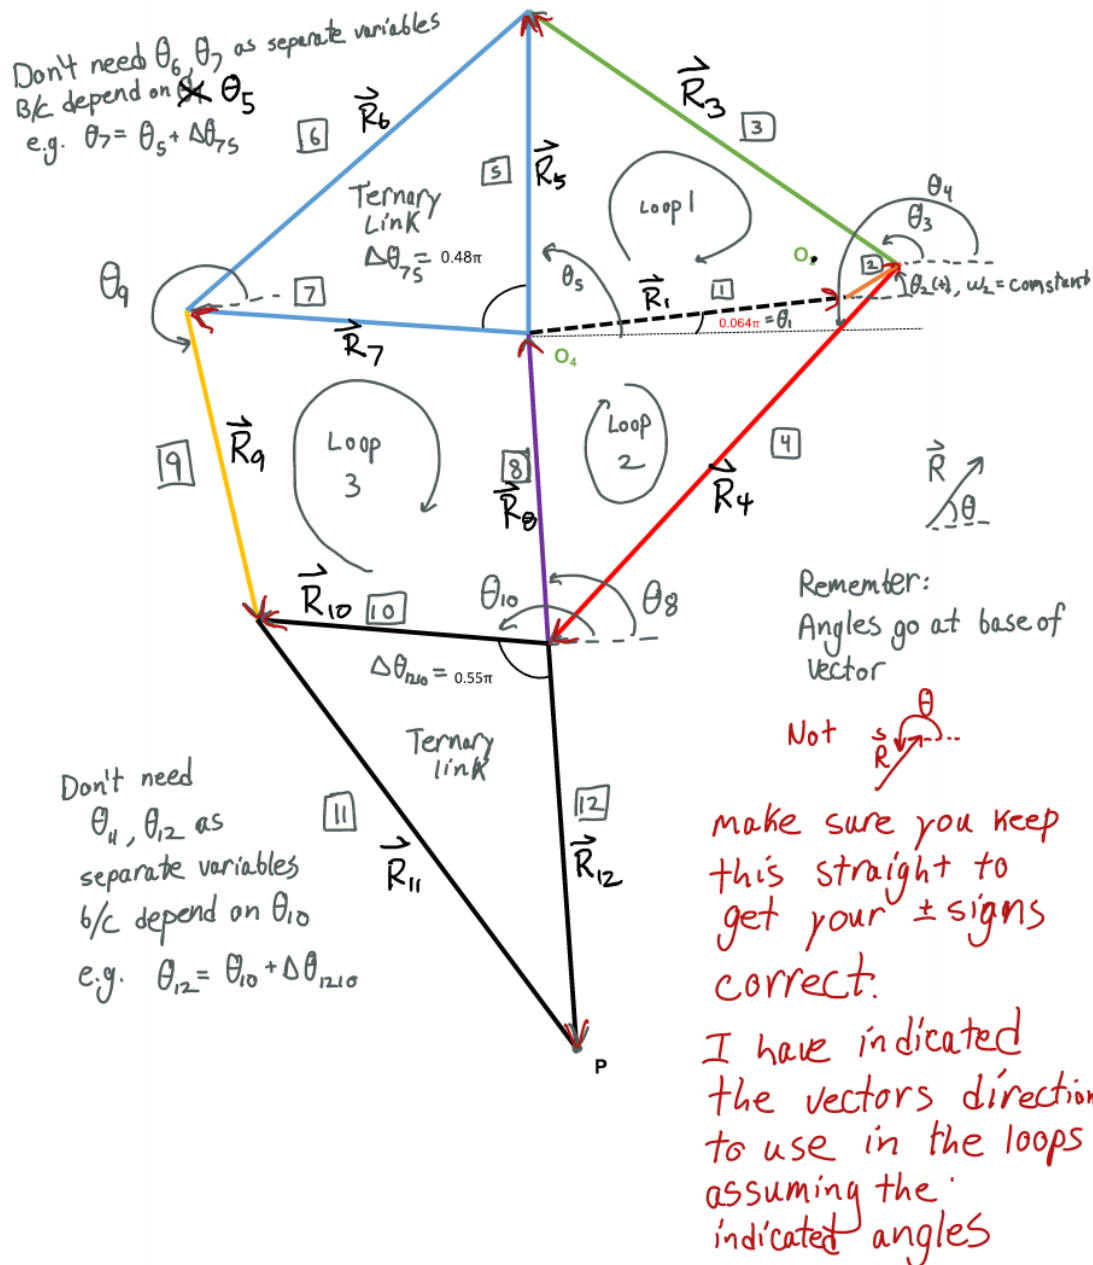 Don't need θ₆, θ₇ as separate variables
B/c depend on θ₅
e.g. θ₇ = θ₅ + Δθ₇₅
R⃗₆
6
R⃗₃
3
5
R⃗₅
Ternary
Link
Δθ₇₅ = 0.48π
Loop 1
θ₄
θ₃
O₂
2
θ₂(t), ω₂ = constant
θ₉
7
θ₅
R⃗₁
1
0.064π = θ₁
R⃗₇
O₄
R⃗₉
9
Loop
3
8
R⃗₈
Loop
2
4
R⃗₄
R⃗
θ
R⃗₁₀
10
θ₁₀
θ₈
Δθ₁₂₁₀ = 0.55π
Remember:
Angles go at base of
vector
Ternary
link
Not
θ
R
Don't need
θ₁₁, θ₁₂ as
separate variables
b/c depend on θ₁₀
e.g. θ₁₂ = θ₁₀ + Δθ₁₂₁₀
11
R⃗₁₁
12
R⃗₁₂
P
make sure you keep
this straight to
get your ± signs
correct.
I have indicated
the vectors direction
to use in the loops
assuming the
indicated angles